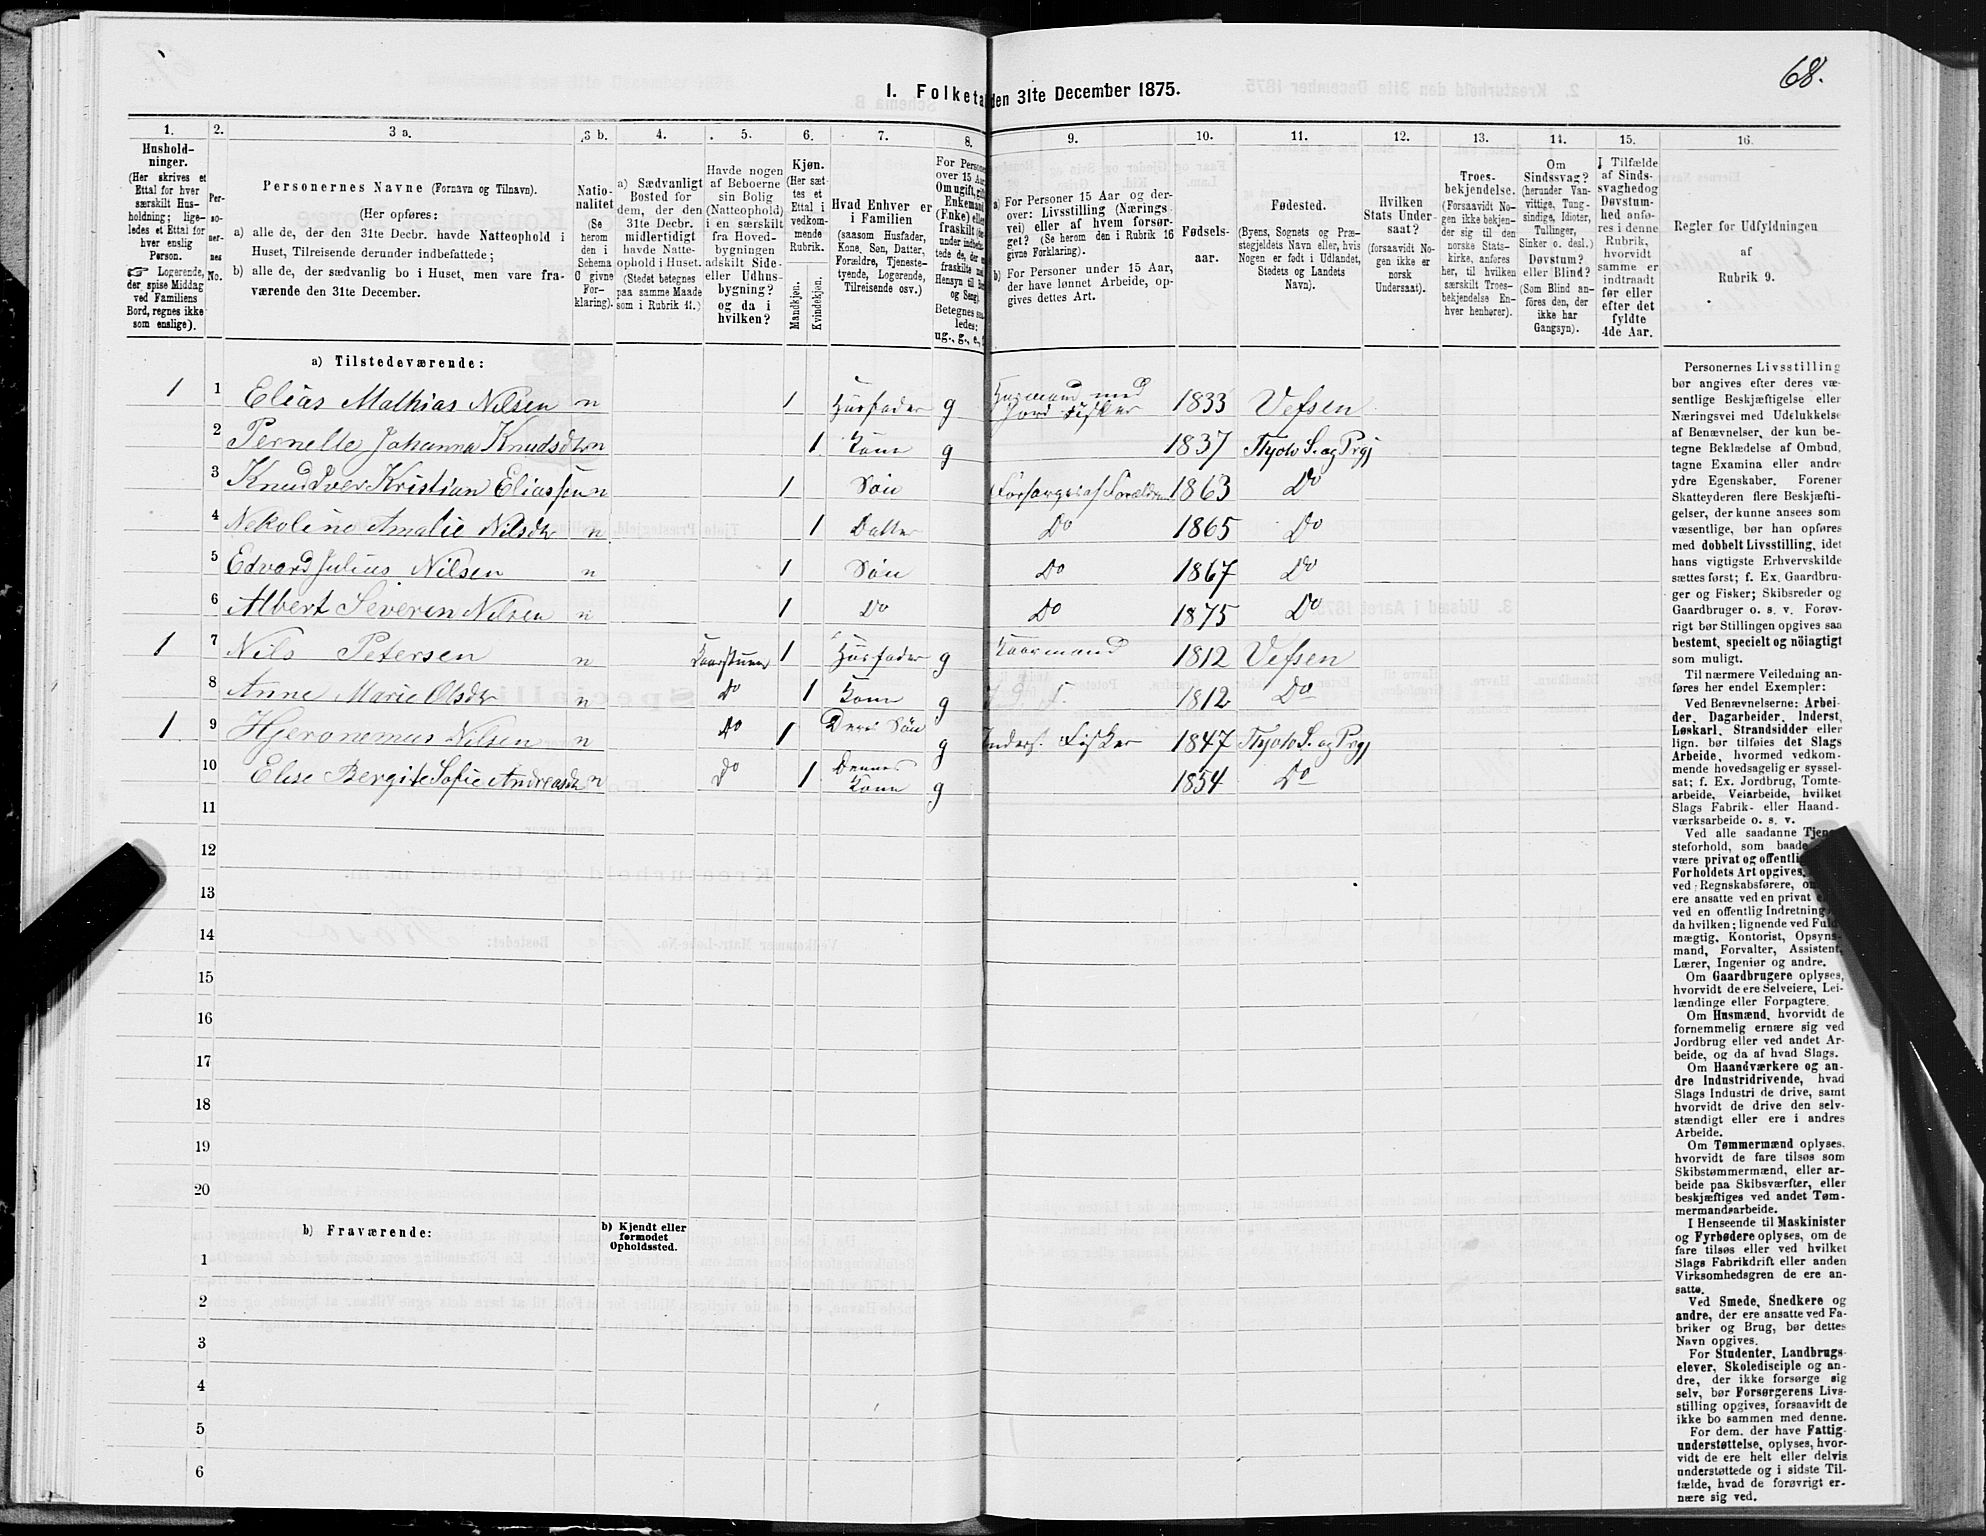 68.
I. Folketa
den 31te December 1875.
1. 2. 3 a. 3 b. 4. 5. 6. 7. 8. 9. 10. 11. 12. 13. 14. 15. 16.
Hushold-
ninger.
(Her skrives et
Ettal for hver
særskilt Hus-
holdning; lige-
ledes et Ettal for
hver enslig
Person.
☞ Logerende,
der spise Middag
ved Familiens
Bord, regnes ikke
som enslige).
Per-
so-
ner-
nes
No.
Personernes Navne (Fornavn og Tilnavn).
(Her opføres:
a) alle de, der den 31te Decbr. havde Natteophold i
Huset, Tilreisende derunder indbefattede;
b) alle de, der sædvanlig bo i Huset, men vare fra-
værende den 31te December.
Natio-
nalitet
(Se
herom
den i
Schema
C givne
For-
klaring).
a) Sædvanligt
Bosted for
dem, der den
31te Decbr.
midlertidigt
havde Natte-
ophold i Huset.
(Stedet betegnes
paa samme Maade
som i Rubrik 11.)
Havde nogen
af Beboerne
sin Bolig
(Natteophold)
i en særskilt
fra Hoved-
bygningen
adskilt Side-
eller Udhus-
bygning?
og da i
hvilken?
Kjøn.
(Her sæt-
tes et
Ettal i
vedkom-
mende
Rubrik.
Mandkjøn.
Kvindekjøn.
Hvad Enhver er
i Familien
(saasom Husfader,
Kone, Søn, Datter,
Forældre, Tjeneste-
tyende, Logerende,
Tilreisende osv.)
For Persone
over 15 Aar
Om ugift, gift,
Enkemand
(Enke) eller
fraskilt
under indbefat-
tede de, der
fraskilte
Hensyn til B
og Seng).
Betegnes
ledes:
ug., g., e.,
a) For Personer 15 Aar og der-
over: Livsstilling (Nærings
vei) eller af hvem forsør-
get? (Se herom den i Rubrik 16
givne Forklaring).
b) For Personer under 15 Aar,
der have lønnet Arbeide, op-
gives dettes Art.
Fødsels-
aar.
Fødested.
(Byens, Sognets og Præ-
stegjeldets Navn eller, hvis
Nogen er født i Udlandet,
Stedets og Landets
Navn).
Hvilken
Stats Under-
saat?
(forsaavidt No-
gen ikke er
norsk
Undersaat).
Troes-
bekjendelse.
(Forsaavidt No-
gen ikke bekjen-
der sig til den
norske Stats-
kirke, anføres
her, til hvilken
særskilt Troes-
bekjendelse En-
hver henhører).
Om
Sindssvag?
(herunder Van-
vittige, Tung-
sindige, Idioter,
Tullinger,
Sinker o. desl.)
Døvstum?
eller Blind?
(Som Blind an-
føres den, der
ikke har
Gangsyn).
I Tilfælde
af Sinds-
svaghed og
Døvstum-
hed anfø-
res i denne
Rubrik,
hvorvidt
samme er
indtraadt
før eller
efter det
fyldte
4de Aar.
Regler for Udfyldningen
af
Rubrik 9.
a) Tilstedeværende:
1 1 Elias Mathias Nilsen n 1 Husfader g Husmand med Jord Fisker 1833 Vefsen
2 Pernelle Johanna Knudsdtr n 1 Kone g 1837 Thjotø S. og Prgj
3 Knud Kristian Eliassen n 1 Søn Forsørges af Forældrene 1863 Do
4 Nekoline Amalie Nilsdtr n 1 Datter Do 1865 Do
5 Edvard Julius Nilsen n 1 Søn Do 1867 Do
6 Albert Severin Nilsen n 1 Do Do 1875 Do
1 7 Nils Petersen n 1 Husfader g Kaarmand 1812 Vefsen
8 Anne Marie Olsdtr n Do 1 Kone g 1812 Do
1 9 Hjeronemus Nilsen n Do 1 Deres Søn g Inderst. Fisker 1847 Thjotø S. og Prgj
10 Elise Bergite Sofie Andreasdtr n Do 1 Dennes Kone g 1854 Do
11
12
13
14
15
16
17
18
19
20
b) Fraværende:
b) Kjendt eller
formodet
Opholdssted.
1
2
3
4
5
6
Personernes Livsstilling
bør angives efter deres væ-
sentlige Beskjæftigelse eller
Næringsvei med Udelukkelse
af Benævnelser, der kun be-
tegne Bekledelse af Ombud,
tagne Examina eller andre
ydre Egenskaber. Forener
Skatteyderen flere Beskjæfti-
gelser, der kunne ansees som
væsentlige, bør han opføres
med dobbelt Livsstilling, idet
hans vigtigste Erhvervskilde
sættes først; f. Ex. Gaardbru-
ger og Fisker; Skibsreder og
Gaardbruger o. s. v. Forøv-
rigt bør Stillingen opgives saa
bestemt, specielt og nöiagtigt
som muligt.
Til nærmere Veiledning an-
føres her endel Exempler:
Ved Benævnelserne: Arbei-
der, Dagarbeider, Inderst,
Løskarl, Strandsidder eller
lign. bør tilføies det Slags
Arbeide, hvormed vedkom-
mende hovedsagelig er syssel-
sat; f. Ex. Jordbrug, Tomte-
arbeide, Veiarbeide, hvilket
Slags Fabrik- eller Haand-
værksarbeide o. s. v.
Ved alle saadanne Tjene-
steforhold, som baade
være privat og offentlig
Forholdets Art opgives,
ved Regnskabsførere, om
ere ansatte ved en privat
ved en offentlig Indretning
da hvilken; lignende ved Fuld-
mægtig, Kontorist, Opsyns-
mand, Forvalter, Assistent,
Lærer, Ingeniør og andre.
Om Gaardbrugere oplyses,
hvorvidt de ere Selveiere, Lei-
lændinge eller Forpagtere.
Om Husmænd, hvorvidt de
fornemmelig ernære sig ved
Jordbrug eller ved andet Ar-
beide, og da af hvad Slags.
Om Haandværkere og an-
dre Industridrivende, hvad
Slags Industri de drive, samt
hvorvidt de drive den selv-
stændigt eller ere i andres
Arbeide.
Om Tømmermænd oplyses,
hvorvidt de fare tilsøs som
Skibstømmermænd, eller ar-
beide paa Skibsværfter, eller
beskjæftiges ved andet Tøm-
mermandsarbeide.
I Henseende til Maskinister
og Fyrbødere oplyses, om de
fare tilsøs eller ved hvilket
Slags Fabrikdrift eller anden
Virksomhedsgren de ere an-
satte.
Ved Smede, Snedkere og
andre, der ere ansatte ved Fa-
briker og Brug, bør dettes
Navn opgives.
For Studenter, Landbrugs-
elever, Skoledisciple og an-
dre, der ikke forsørge sig
selv, bør Forsørgerens Livs-
stilling opgives, forsaavidt de
ikke bo sammen med denne.
For dem, der have Fattig-
understøttelse, oplyses, hvor-
vidt de ere helt eller delvis
understøttede og i sidste Til-
fælde, hvad de forøvrigt er-
nære sig ved.